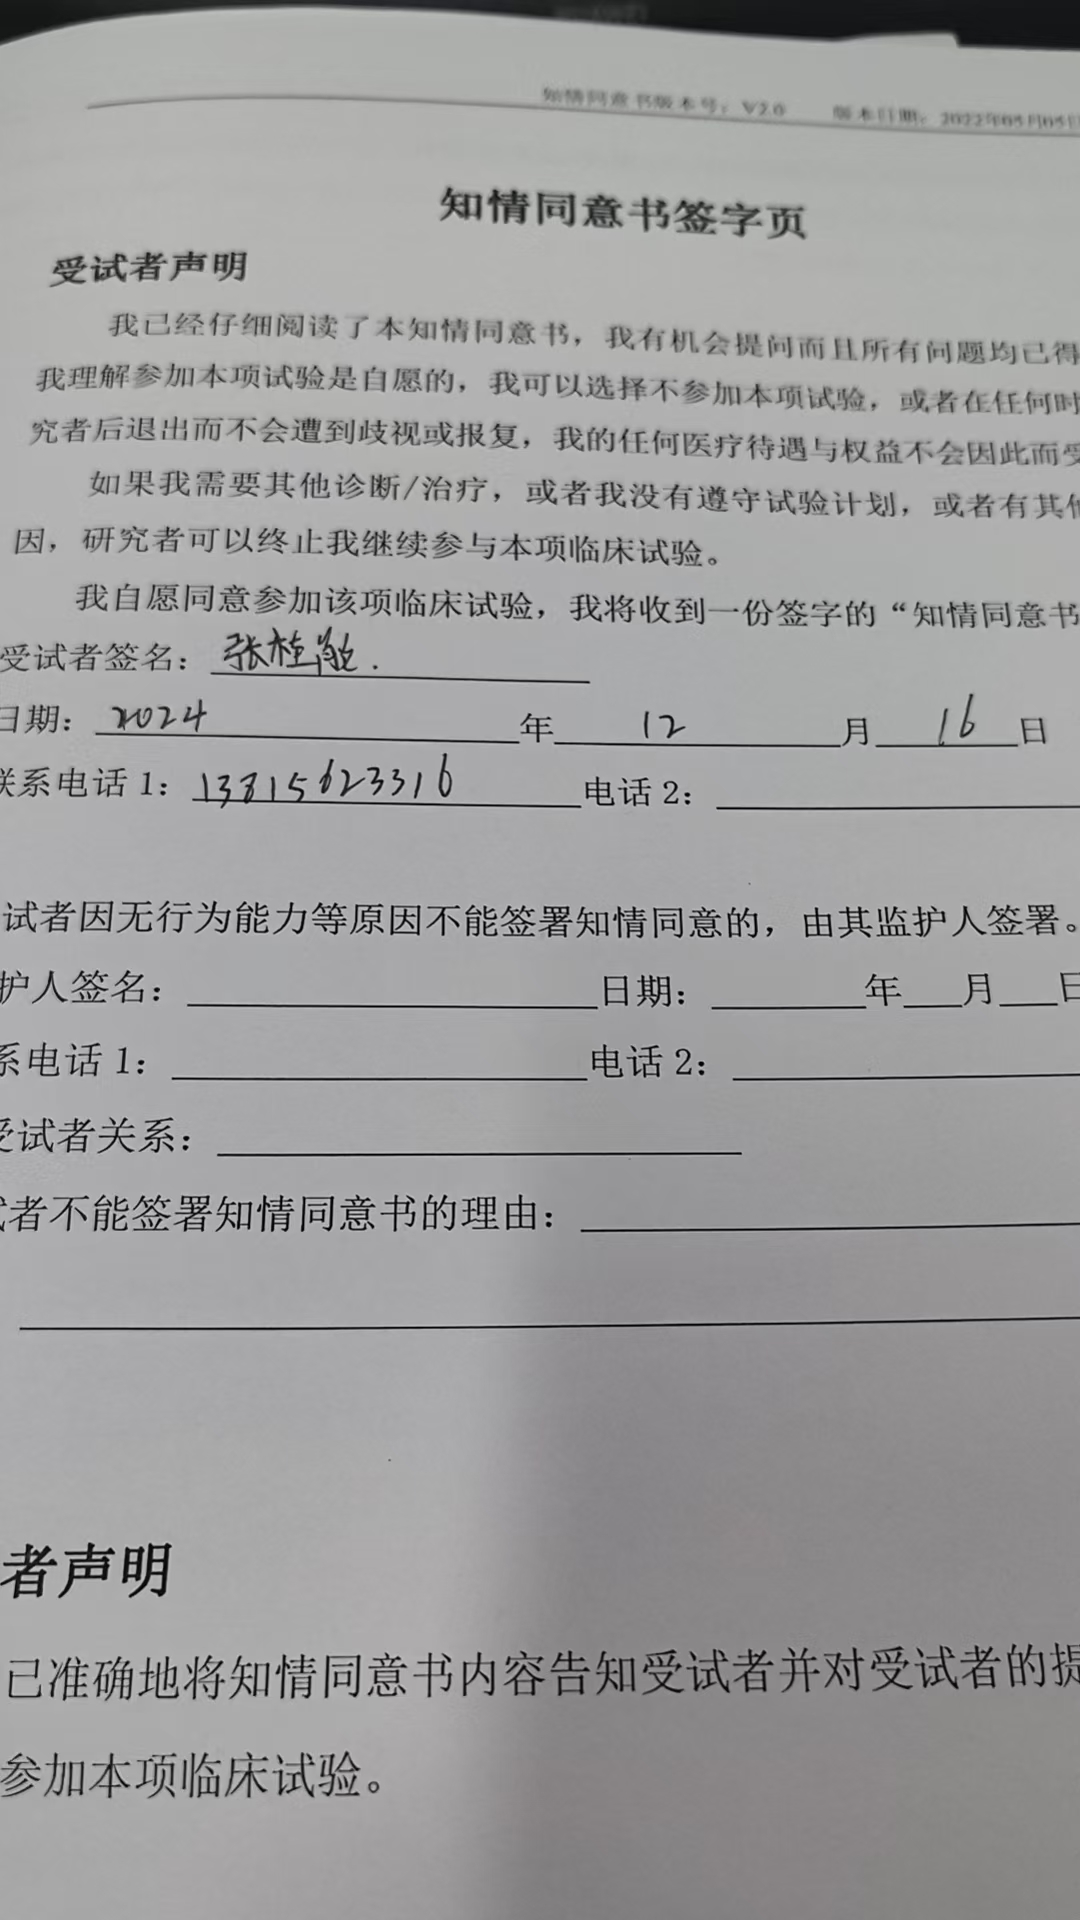 知情同意书版本号：V2.0 版本日期：2022年05月05日
知情同意书签字页
受试者声明
我已经仔细阅读了本知情同意书，我有机会提问而且所有问题均已得
我理解参加本项试验是自愿的，我可以选择不参加本项试验，或者在任何时
究者后退出而不会遭到歧视或报复，我的任何医疗待遇与权益不会因此而受
如果我需要其他诊断/治疗，或者我没有遵守试验计划，或者有其他
因，研究者可以终止我继续参与本项临床试验。
我自愿同意参加该项临床试验，我将收到一份签字的“知情同意书
受试者签名：张桂
日期：2024年12月16日
联系电话 1：13815623316 电话 2：
试者因无行为能力等原因不能签署知情同意的，由其监护人签署。
护人签名： 日期： 年 月 日
系电话 1： 电话 2：
受试者关系：
试者不能签署知情同意书的理由：
者声明
已准确地将知情同意书内容告知受试者并对受试者的提
参加本项临床试验。